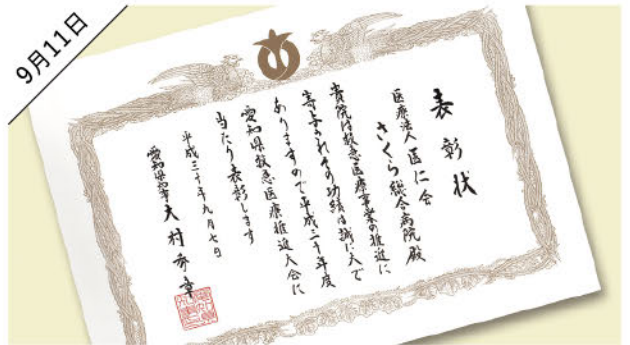 9月11日
表彰状
医療法人医仁会
さくら総合病院殿
貴院は救急医療事業の推進に
寄与されその功績は誠に大で
ありますので平成三十年度
愛知県救急医療推進大会に
当たり表彰します
平成三十年九月七日
愛知県知事大村秀章